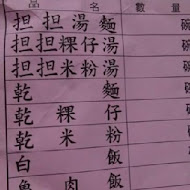 品名 數量
担担湯麵 碗
担担粿仔湯 碗
担担米粉湯 碗
乾麵
乾粿仔
乾米粉
白飯
魯肉飯